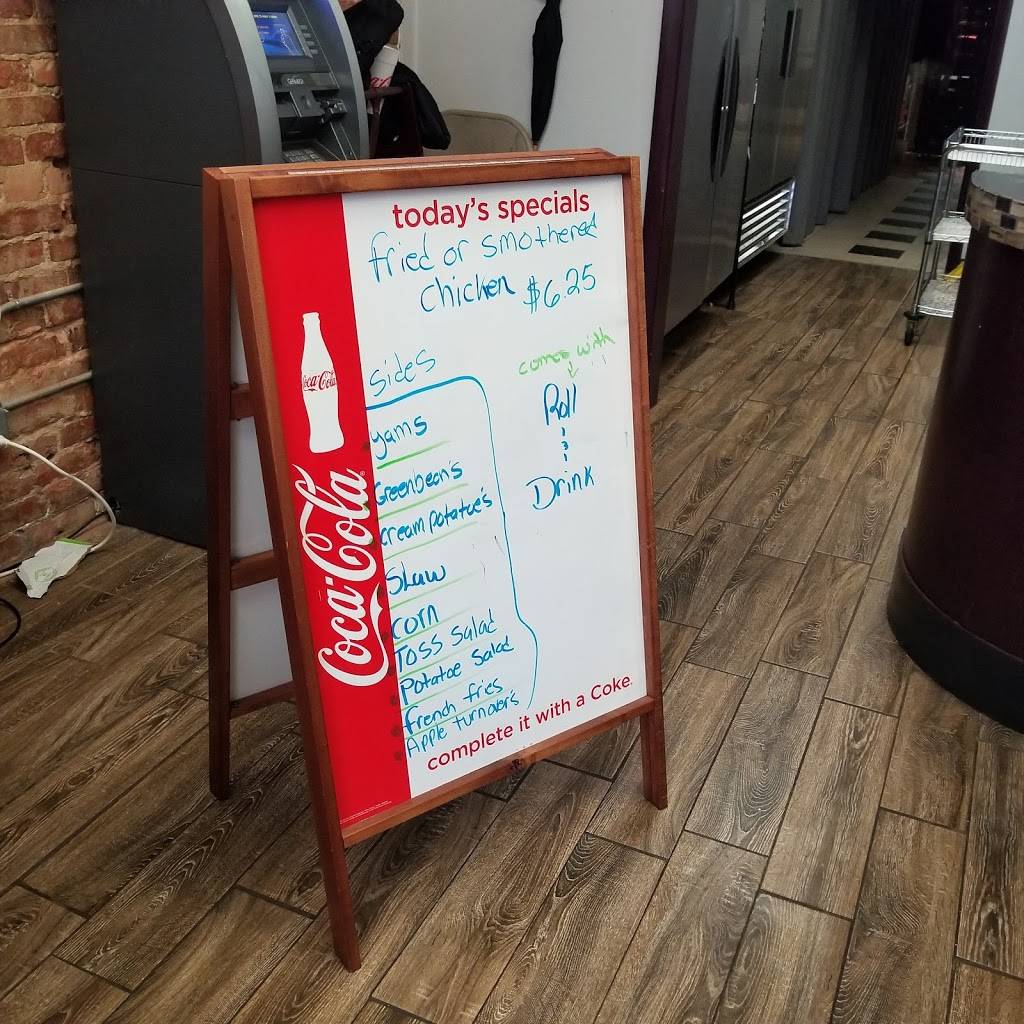 today's specials
fried or smothered
chicken $6.25
sides
comes with
Roll
&
Drink
yams
Greenbean's
cream potatoe's
Slaw
corn
Toss Salad
Potatoe Salad
french fries
Apple turnover's
complete it with a Coke.
Coca-Cola
Coca-Cola